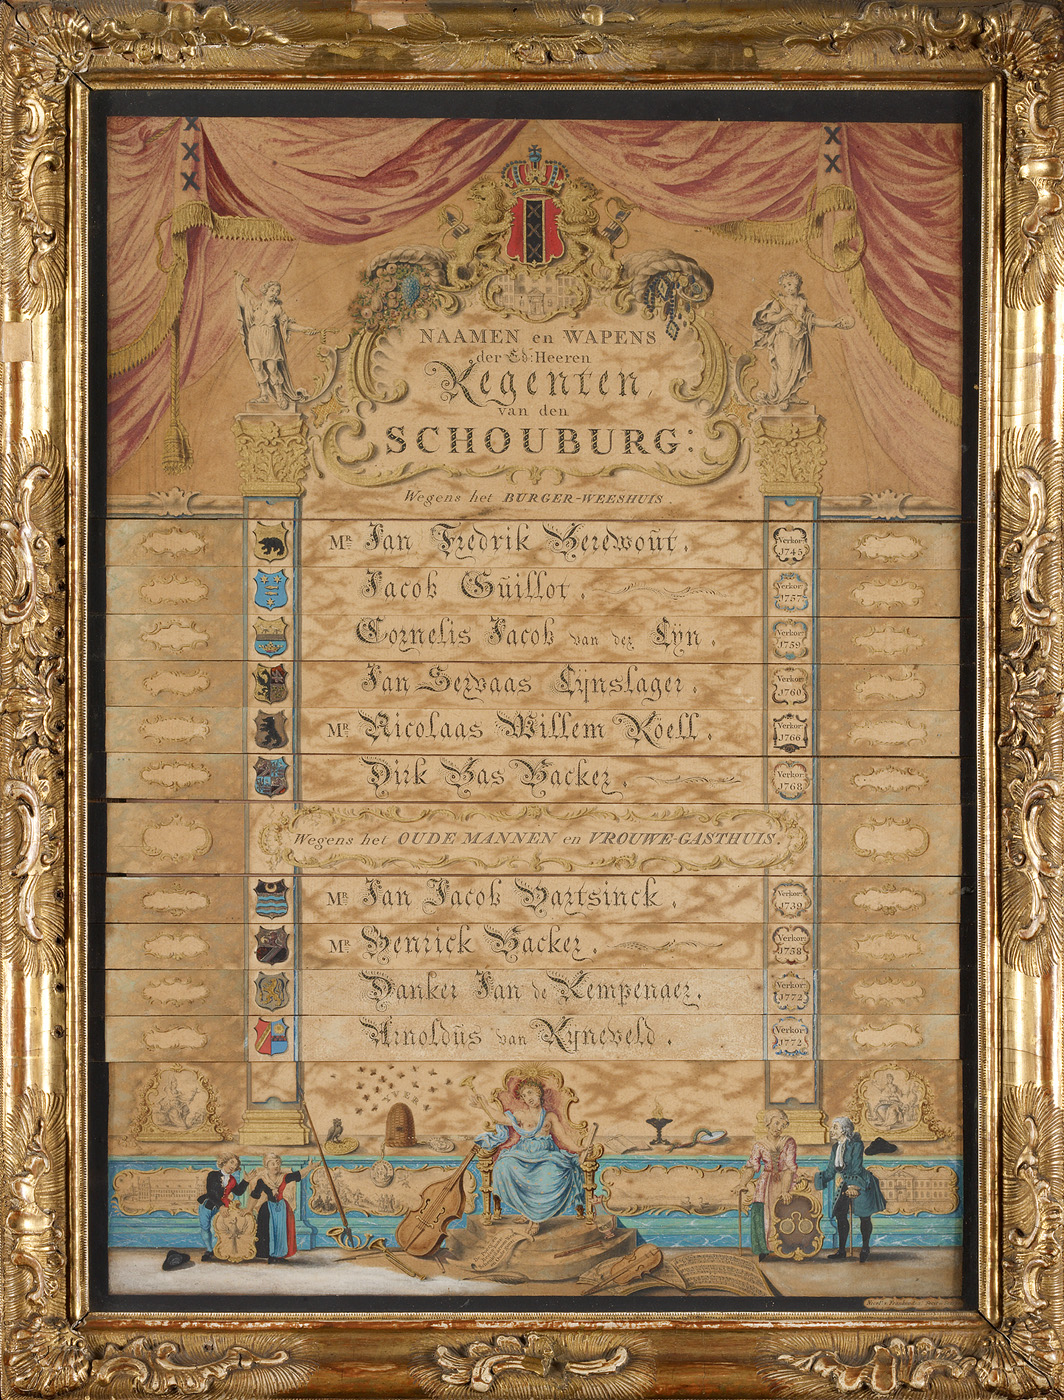 NAAMEN en WAPENS
der Ed: Heeren
Regenten,
van den
SCHOUBURG:
Wegens het BURGER-WEESHUIS.
Mr. Jan Fredrik Berewoüt. Verkor 1745
Jacob Güillot. Verkor 1757
Cornelis Jacob van der Lyn. Verkor 1759
Jan Servaas Lynslager. Verkor 1760
Mr. Nicolaas Willem Röell. Verkor 1766
Dirk Bas Backer. Verkor 1768
Wegens het OUDE MANNEN en VROUWE-GASTHUIS.
Mr. Jan Jacob Hartsinck. Verkor 1739
Mr. Henrick Backer. Verkor 1758
Danker Jan de Kempenaer. Verkor 1772
Arnoldüs van Ryneveld. Verkor 1772
YVER